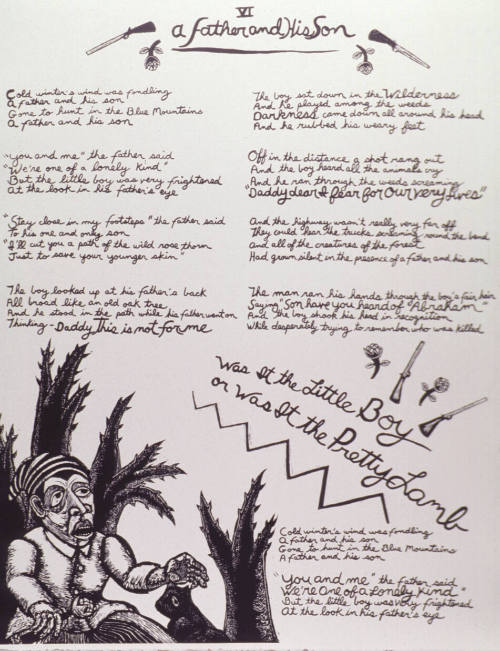 VI
a Father and His Son
Cold winter's wind was fondling
a father and his son
Gone to hunt in the Blue Mountains
A father and his son
"You and me" the father said
"We're one of a lonely kind"
But the little boy was very frightened
At the look in his father's eye
"Stay close in my footsteps" the father said
To his one and only son
"I'll cut you a path of the wild rose thorn
Just to save your younger skin"
The boy looked up at his father's back
All broad like an old oak tree
And he stood in the path while his father went on
Thinking - Daddy This is not for me
The boy sat down in the Wilderness
And he played among the weeds
Darkness came down all around his head
And he rubbed his weary feet
Off in the distance a shot rang out
And the boy heard all the animals cry
And he ran through the weeds screaming
"Daddy dear I fear for Our very lives"
And the highway wasn't really very far off
They could hear the trucks screaming 'round the bend
And all of the creatures of the forest
Had grown silent in the presence of a father and his son
The man ran his hands through the boy's fair hair
Saying "Son have you heard of "Abraham"
And the boy shook his head in recognition
While desperately trying to remember who was killed
Was It the Little Boy
or Was It the Pretty Lamb
Cold winter's wind was fondling
A father and his son
Gone to hunt in the Blue Mountains
A father and his son
"You and me" the father said
"We're One of a Lonely Kind"
But the little boy was very frightened
At the look in his father's eye